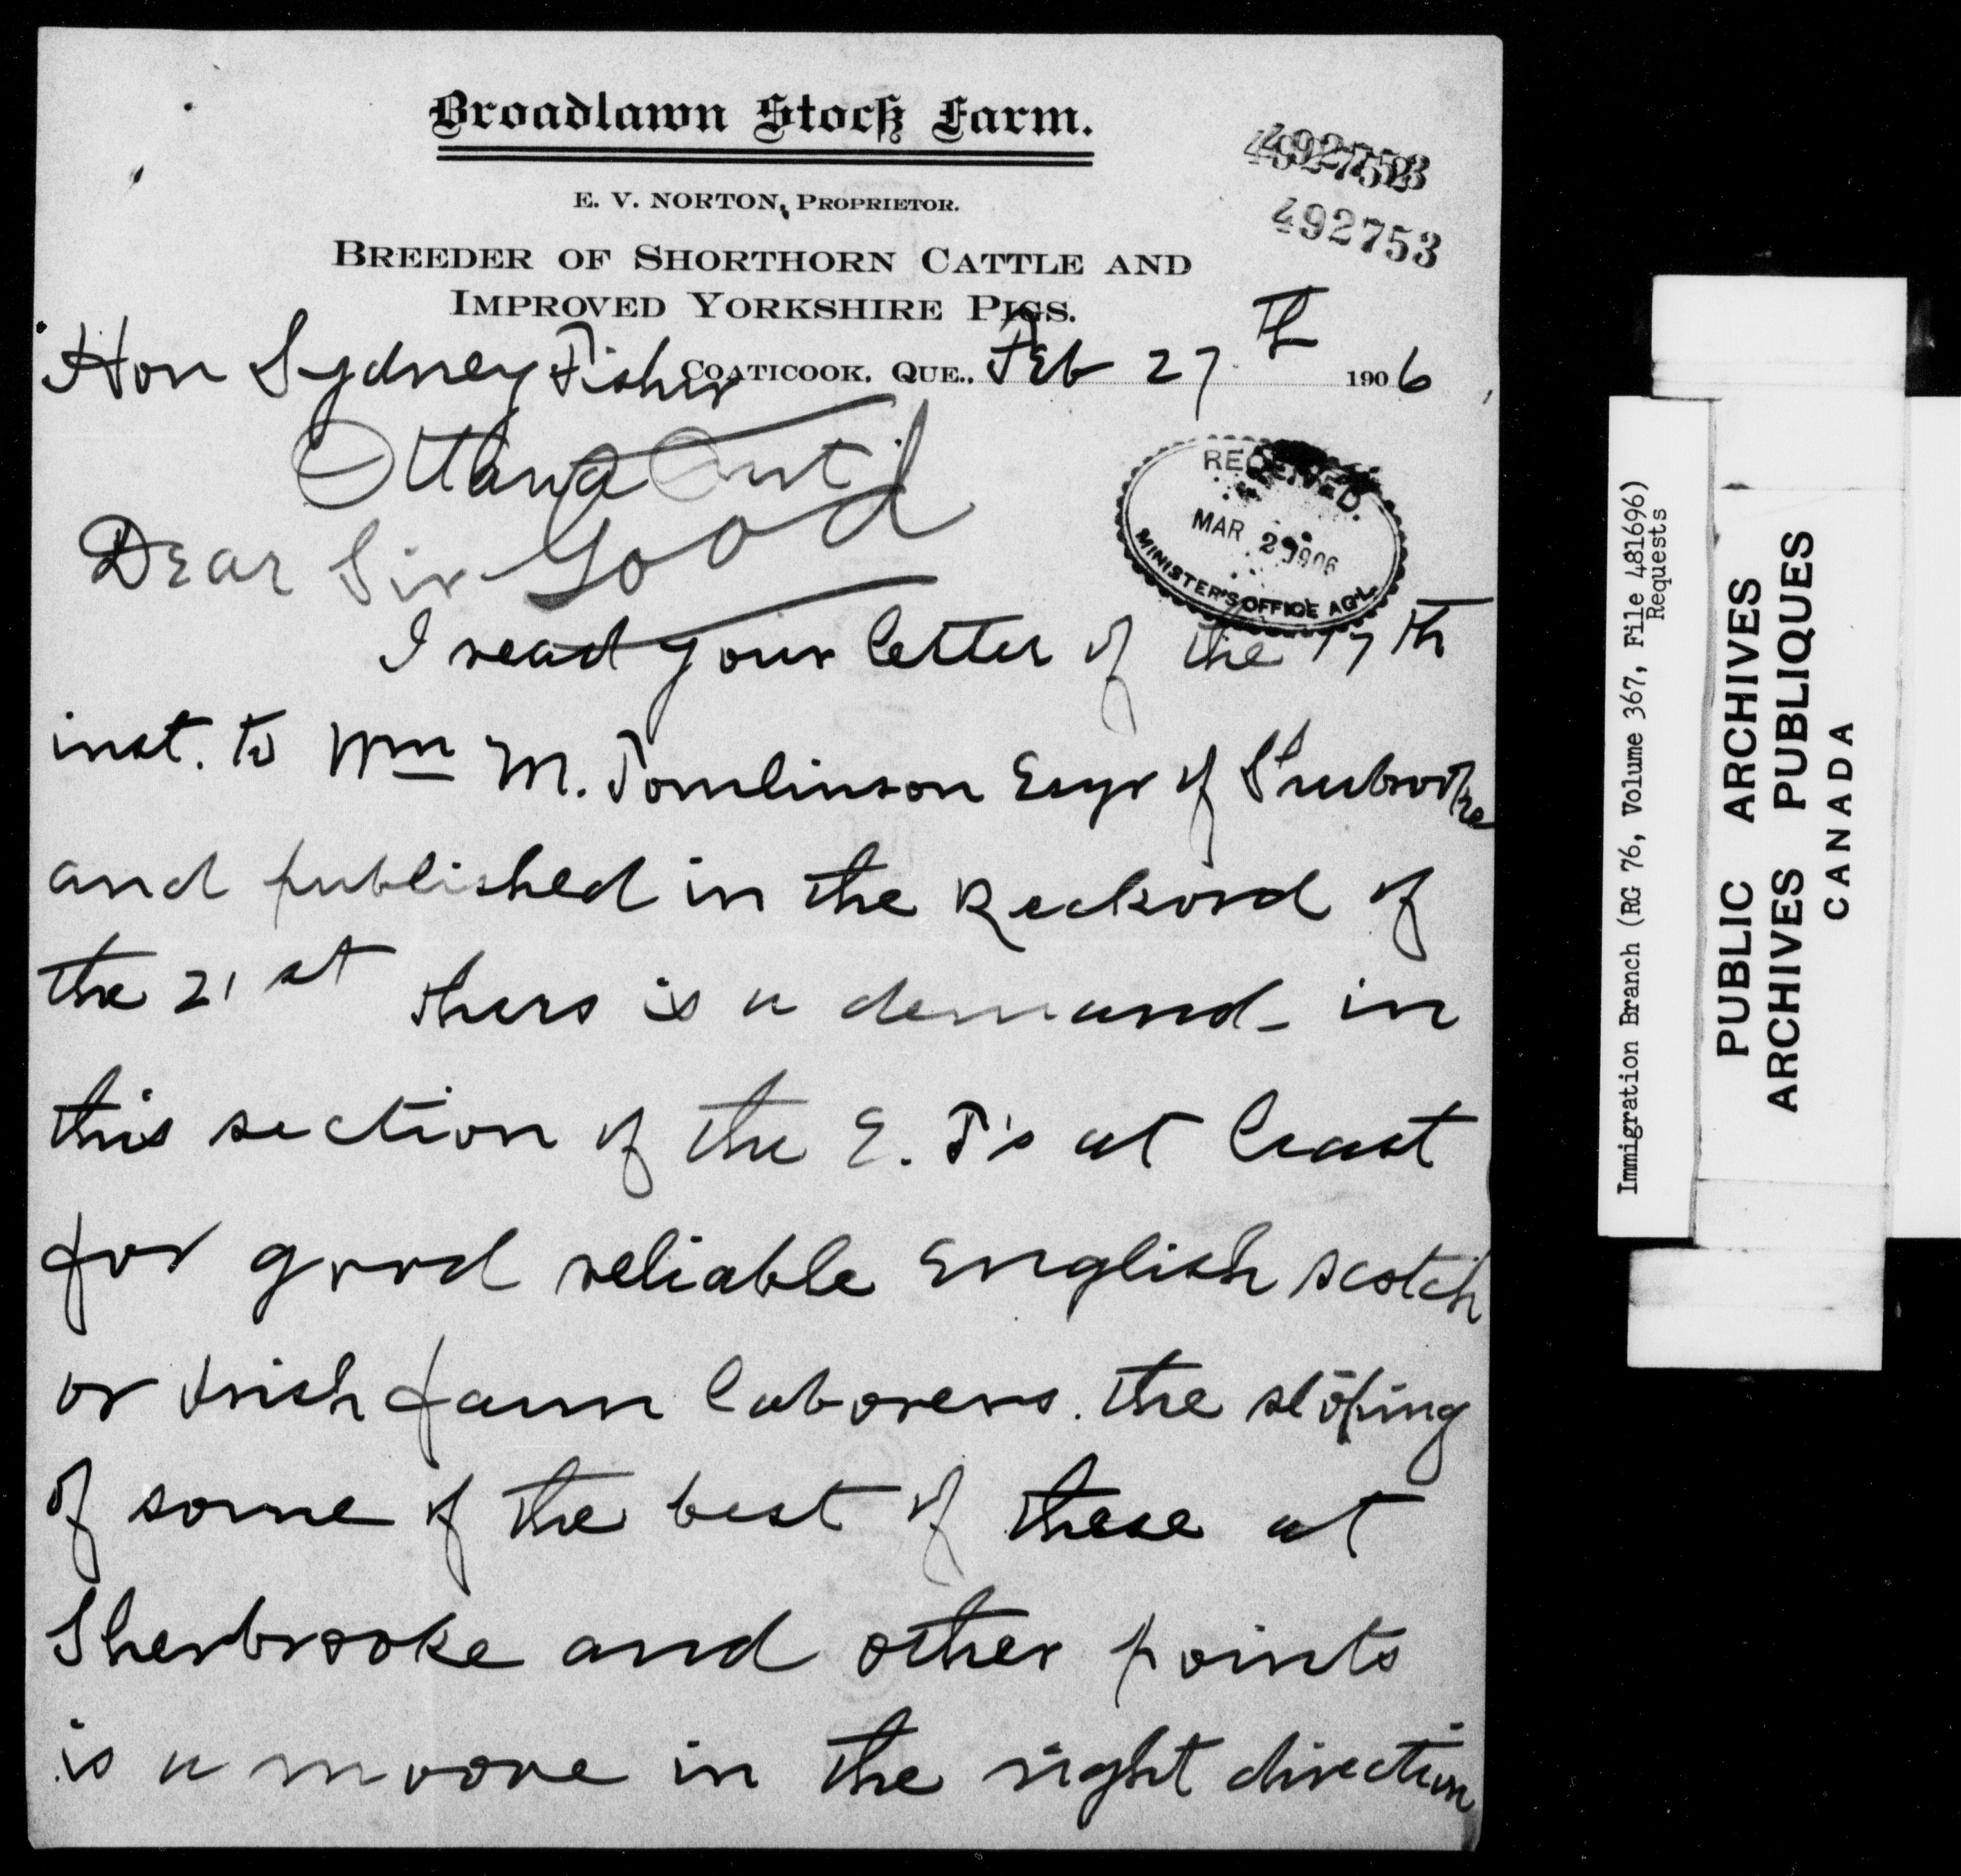 Broadlawn Stock Farm.
E. V. NORTON, PROPRIETOR.
BREEDER OF SHORTHORN CATTLE AND
IMPROVED YORKSHIRE PIGS.
492753
COATICOOK, QUE., Feb 27th 1906
Hon Sydney Fisher
Ottawa Ont
Good
Dear Sir
RECEIVED.
MAR 2 1906
MINISTER'S OFFICE AG'L.
I read your letter of the 17th
inst. to Wm M. Tomlinson Esqr of
and published in the Reckord of
the 21st thers is a demand in
this section of the E. T's at least
for good reliable English scotch
or Irish farm laborers. the stoping
of some of the best of these at
Sherbrooke and other points
is a moove in the right direction
Immigration Branch (RG 76, Volume 367, File 481696)
Requests
PUBLIC ARCHIVES
ARCHIVES PUBLIQUES
CANADA